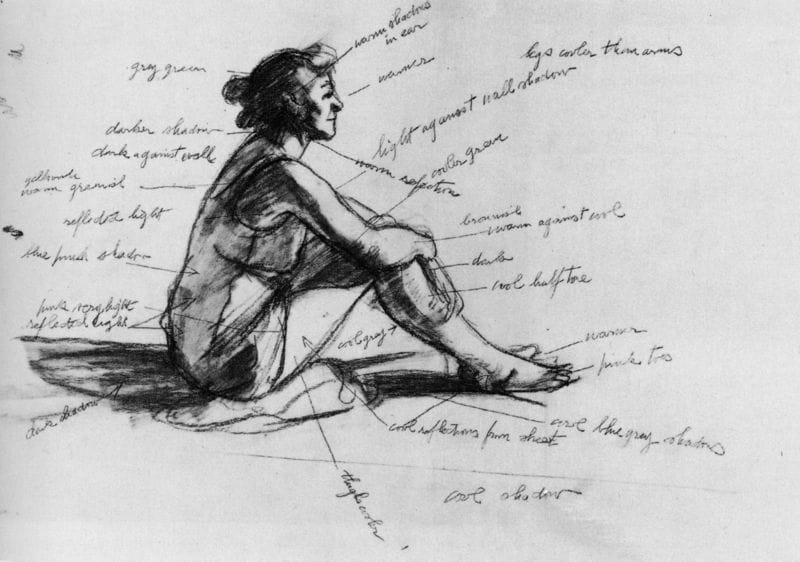 warm shadows
in ear
legs cooler than arms
grey green
warmer
light against wall shadow
darker shadow
dark against wall
cooler green
warm reflection
warm greenish
reflected light
brownish
warm against cool
blue pink shadow
dark
cool half tone
pink very light
reflected light
cool gray
warmer
pink toes
dark shadow
cool reflections from sheet
cool blue grey shadows
thigh cooler
cool shadow